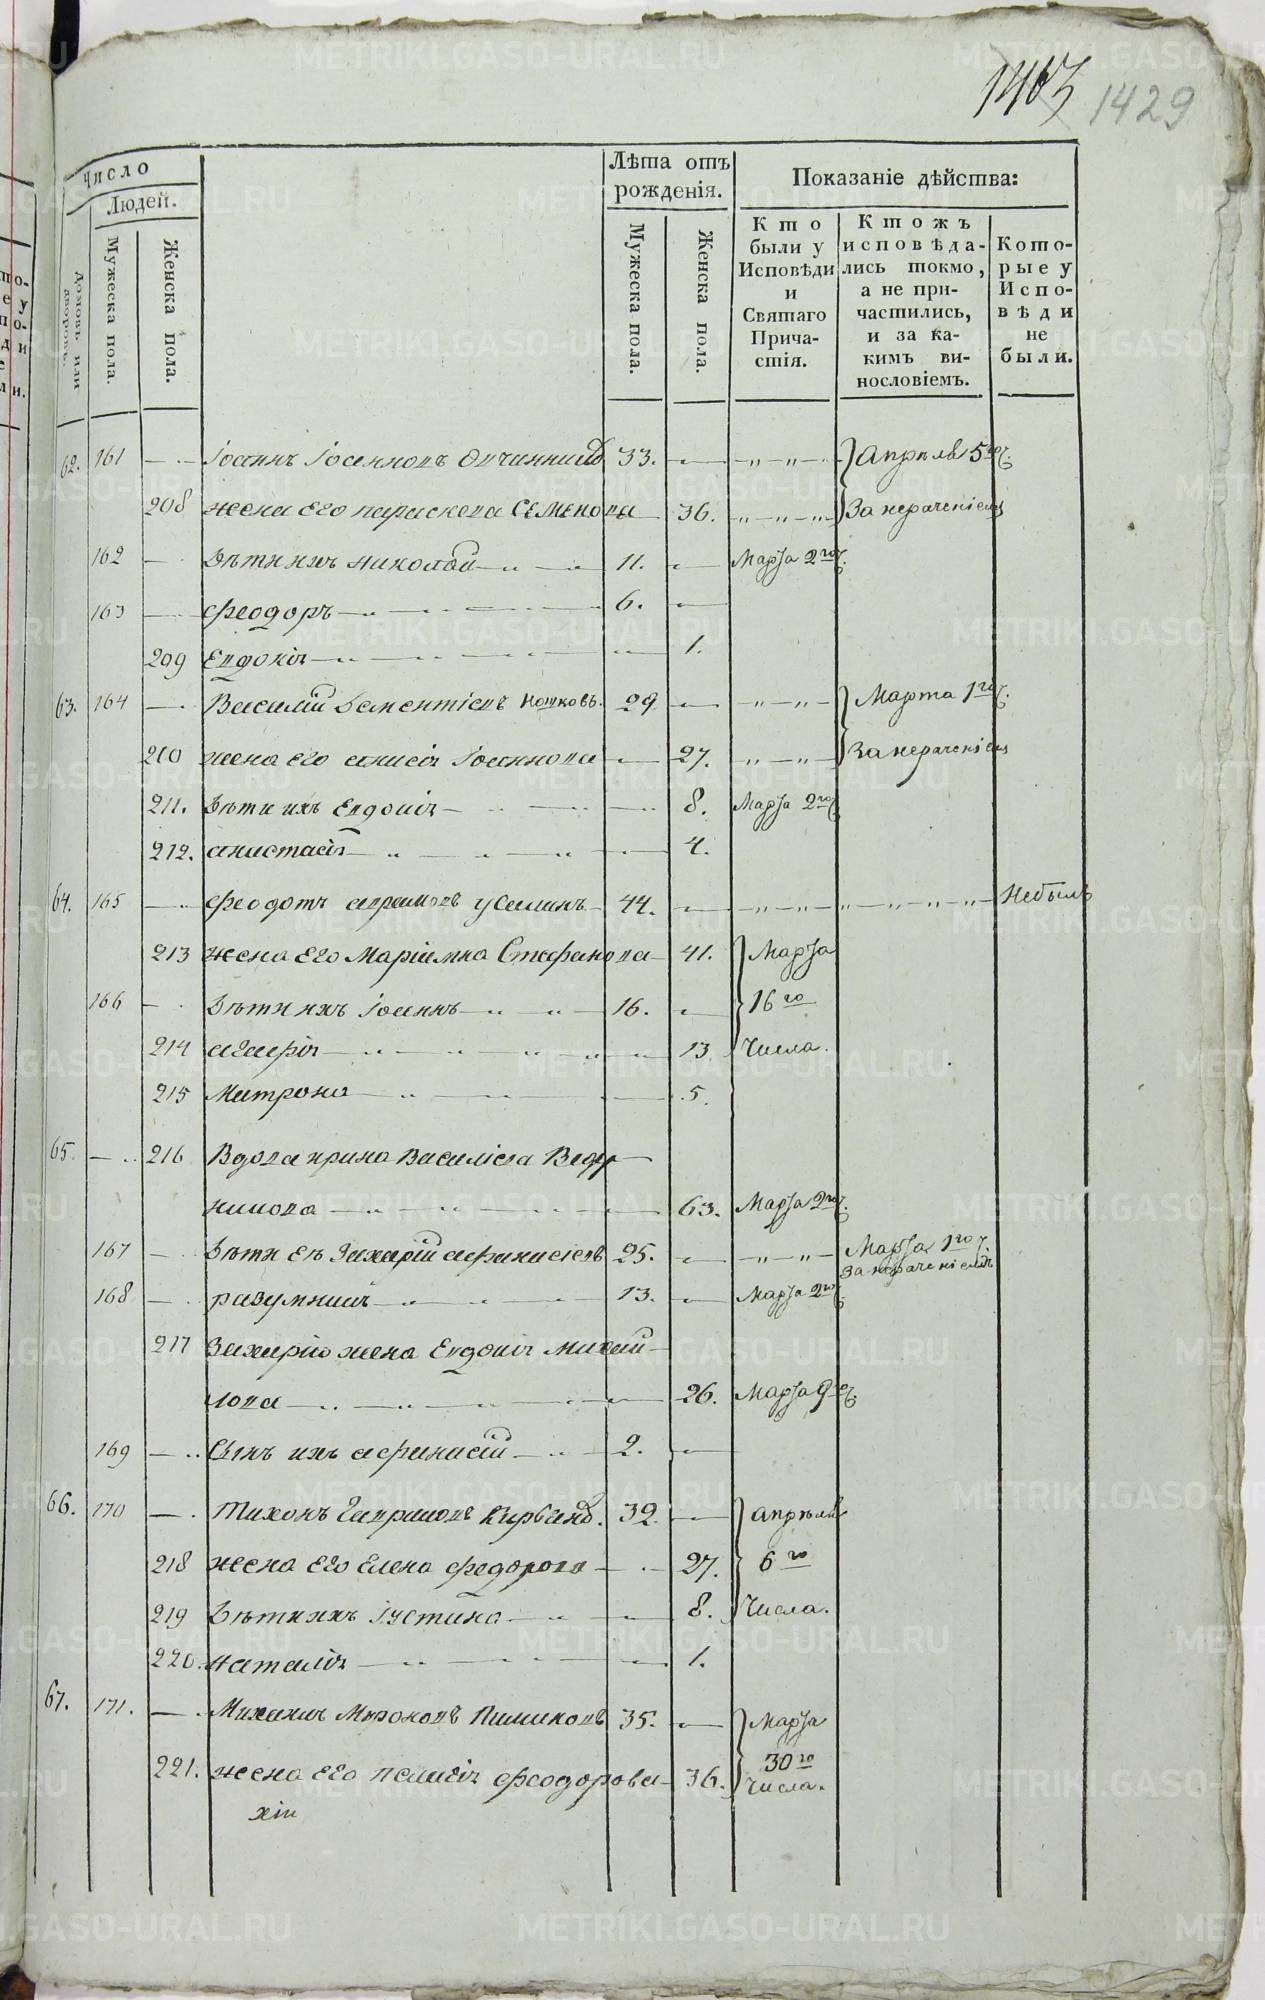 1403 1429
Число
Людей.
Домовъ или дворовъ.
Мужеска пола.
Женска пола.
Лѣта отъ рожденія.
Мужеска пола.
Женска пола.
Показаніе дѣйства:
Кто были у Исповѣди и Святаго Причастія.
Ктожъ исповѣдались токмо, а не причастились, и за какимъ винословіемъ.
Которые у Исповѣди не были.
62. 161 Іоаннъ Іосепповъ Овчинник 33. Апрѣля 5го ч.
208 жена его параскева Семенова 36. За нерачениемъ
162 Дѣти ихъ николай 11. Марта 2го ч.
163 Феодоръ 6.
209 Евдокія 1.
63. 164 Василій Дементіевъ Ношковъ. 29 Марта 1го ч.
210 жена его анисія Іоаннова 27. За нерачениемъ
211. Дѣти ихъ Евдокія 8. Марта 2го ч.
212. анастасія 4.
64. 165 Феодотъ аврамовъ усалинъ 44. Небылъ
213 жена его Маріамна Стефанова 41. Марта
166 Дѣти ихъ Іоаннъ 16. 16го
214 агафія 13 Числа.
215 Матрона 5.
65. 216 Вдова ирина Василіева Ведер
никова 63. Марта 2го ч.
167 Дѣти еѣ Захарій афанасіевъ 25. Марта 1го ч.
За нерачениемъ
168 разумникъ 13. Марта 2го ч.
217 Захарію жена Евдокія михай
лова 26. Марта 9го ч.
169 Сынъ ихъ афанасій 2.
66. 170 Тихонъ Гавриловъ Курбано. 32. Апрѣля
218 жена его Елена федорова 27. 6го
219 Дѣти ихъ Іустина 8. Числа.
220. наталія 1.
67. 171. Михаилъ Мироновъ Пиминовъ 35. Марта
221. жена его пелагія феодорова 36. 30го
Числа.